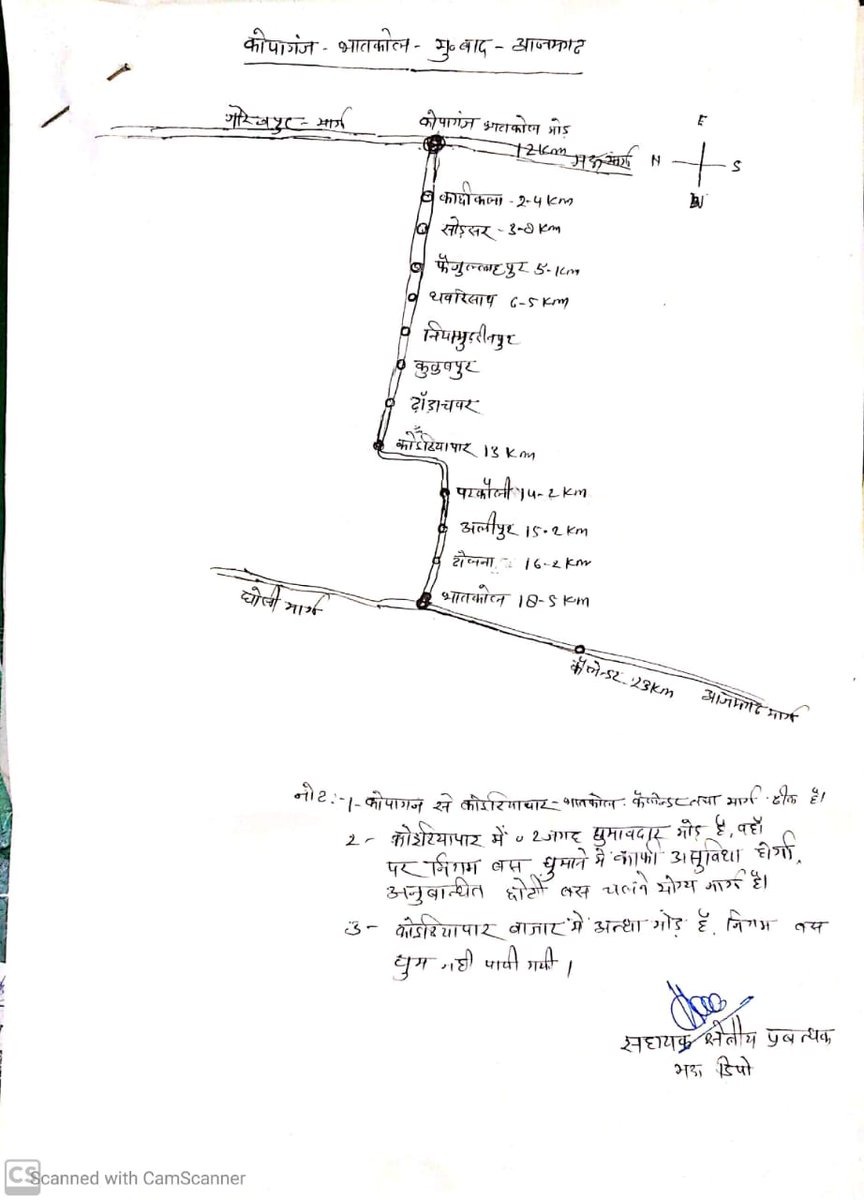 कोपागंज - भातकोल - मु०बाद - आजमगढ
गोरखपुर - मार्ग
कोपागंज भातकोल मोड़
12 Km मऊ मार्ग
E
N S
W
काछीकला - 2-4 Km
सोड़सर - 3-8 Km
फैजुल्लाहपुर 5-1 Km
6-5 Km
निपामुद्दीनपुर
कुतुबपुर
टाँडाचवर
कोईरियापार 13 Km
परकौली 14-2 Km
अलीपुर 15.2 Km
16-2 Km
भातकोल 18-5 Km
घोसी मार्ग
23 Km
आजमगढ मार्ग
नोट:- 1- कोपागंज से कोईरियापार - भातकोल तथा मार्ग ठीक है।
2- कोईरियापार में 02 जगह घुमावदार मोड़ है, वहाँ
पर निगम बस घुमाने में काफी असुविधा होगी,
अनुबन्धित छोटी बस चलने योग्य मार्ग है।
3- कोईरियापार बाजार में अन्धा मोड़ है, निगम बस
घुम नही पायी गयी।
सहायक क्षेत्रीय प्रबन्धक
मऊ डिपो
CS Scanned with CamScanner